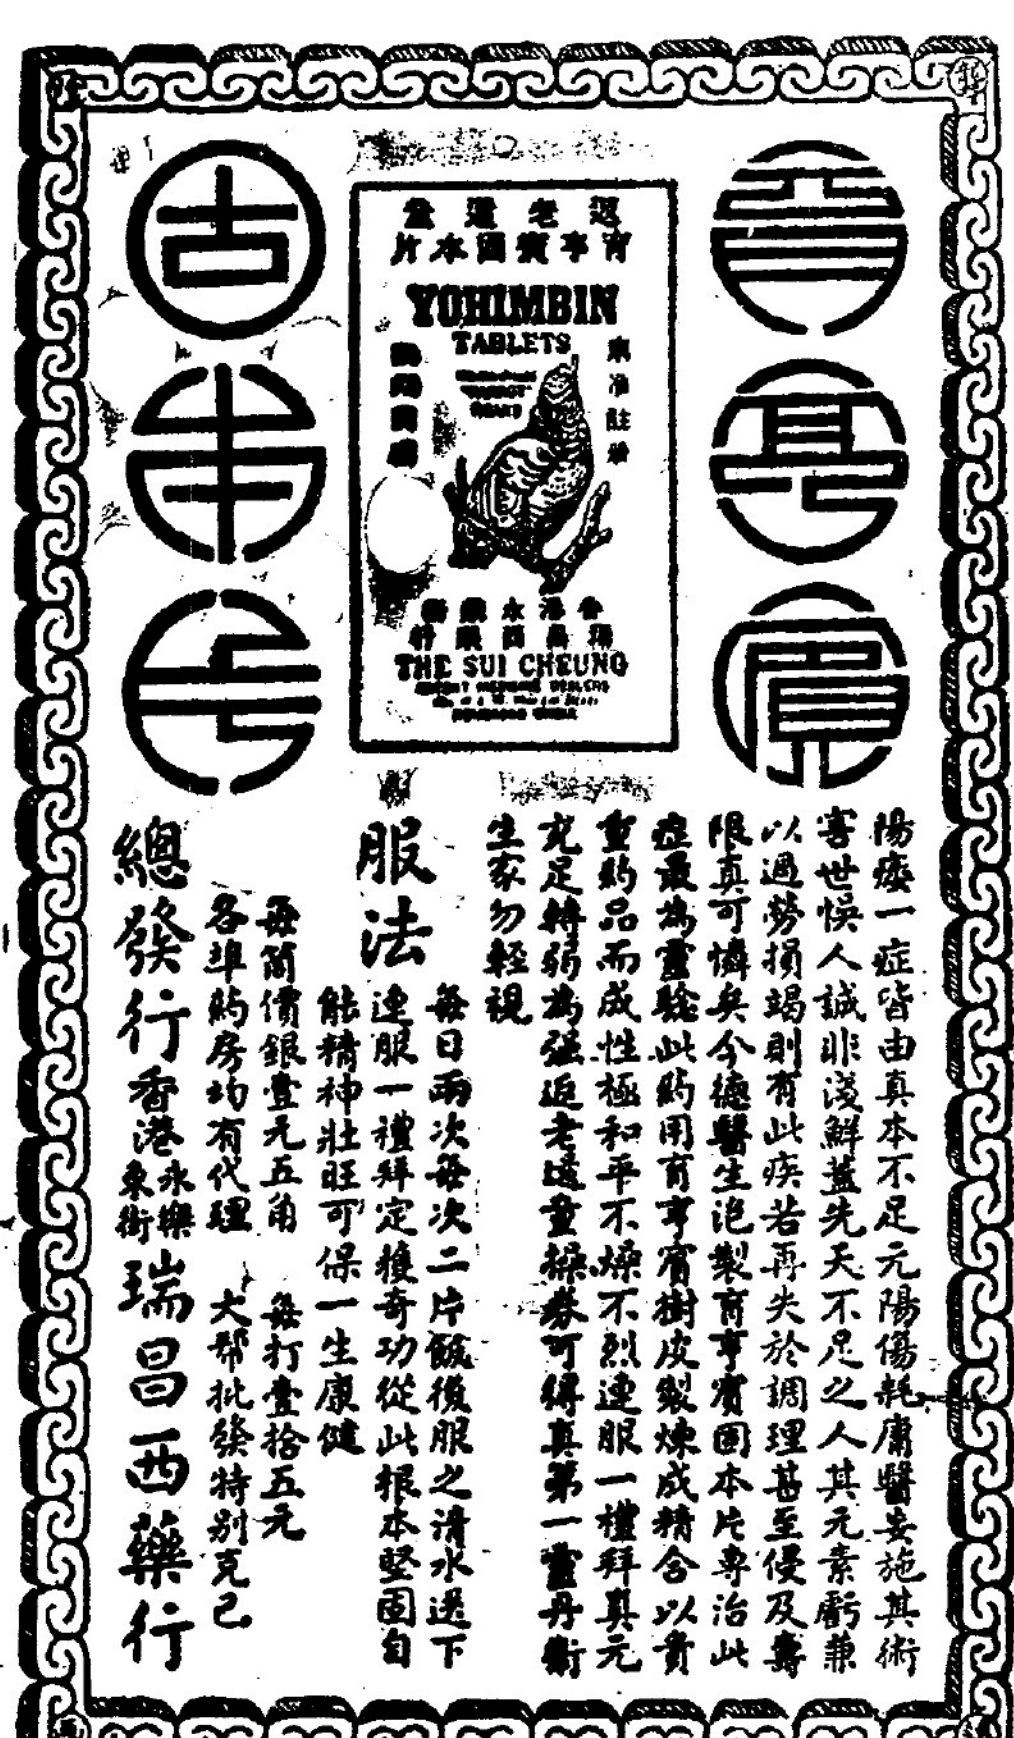 育亨賓固本片
返老還童
育亨賓固本片
YOHIMBIN
TABLETS
東洋註冊
香港永樂街
瑞昌西藥行
THE SUI CHEUNG
陽痿一症皆由真本不足元陽傷耗庸醫妄施其術
害世悞人誠非淺鮮蓋先天不足之人其元素虧兼
以過勞損竭則有此疾若再失於調理甚至侵及壽
限真可憐矣今德醫生氾製育亨賓固本片專治此
症最為靈驗此药用育亨賓樹皮製煉成精合以貴
重药品而成性極和平不燥不烈連服一禮拜真元
充足轉弱為强返老還童操券可得真第一靈丹衛
生家勿輕視
服法
每日兩次每次二片飯後服之清水送下
連服一禮拜定獲奇功從此根本堅固自
能精神壯旺可保一生康健
每筒價銀壹元五角 每打壹拾五元
各埠药房均有代理 大帮批發特別克己
總發行香港永樂東街瑞昌西藥行